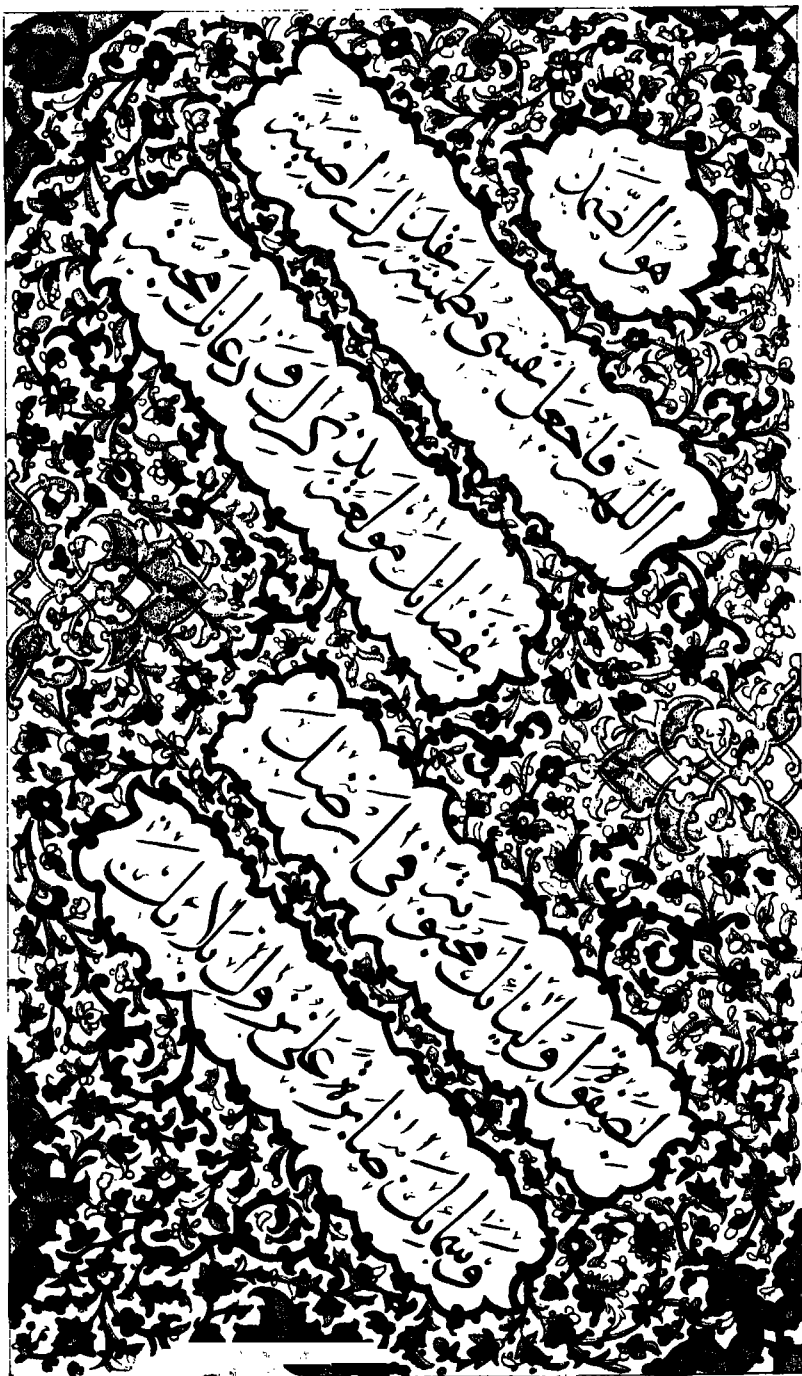 هو الصمد
اللهم فاجعل نفسي مطمئنة بقدرك راضية
بقضائك مولعة بذكرك ودعائك محبة
لصفوة أوليائك محبوبة في أرضك
وسمائك صابرة على نزول بلائك